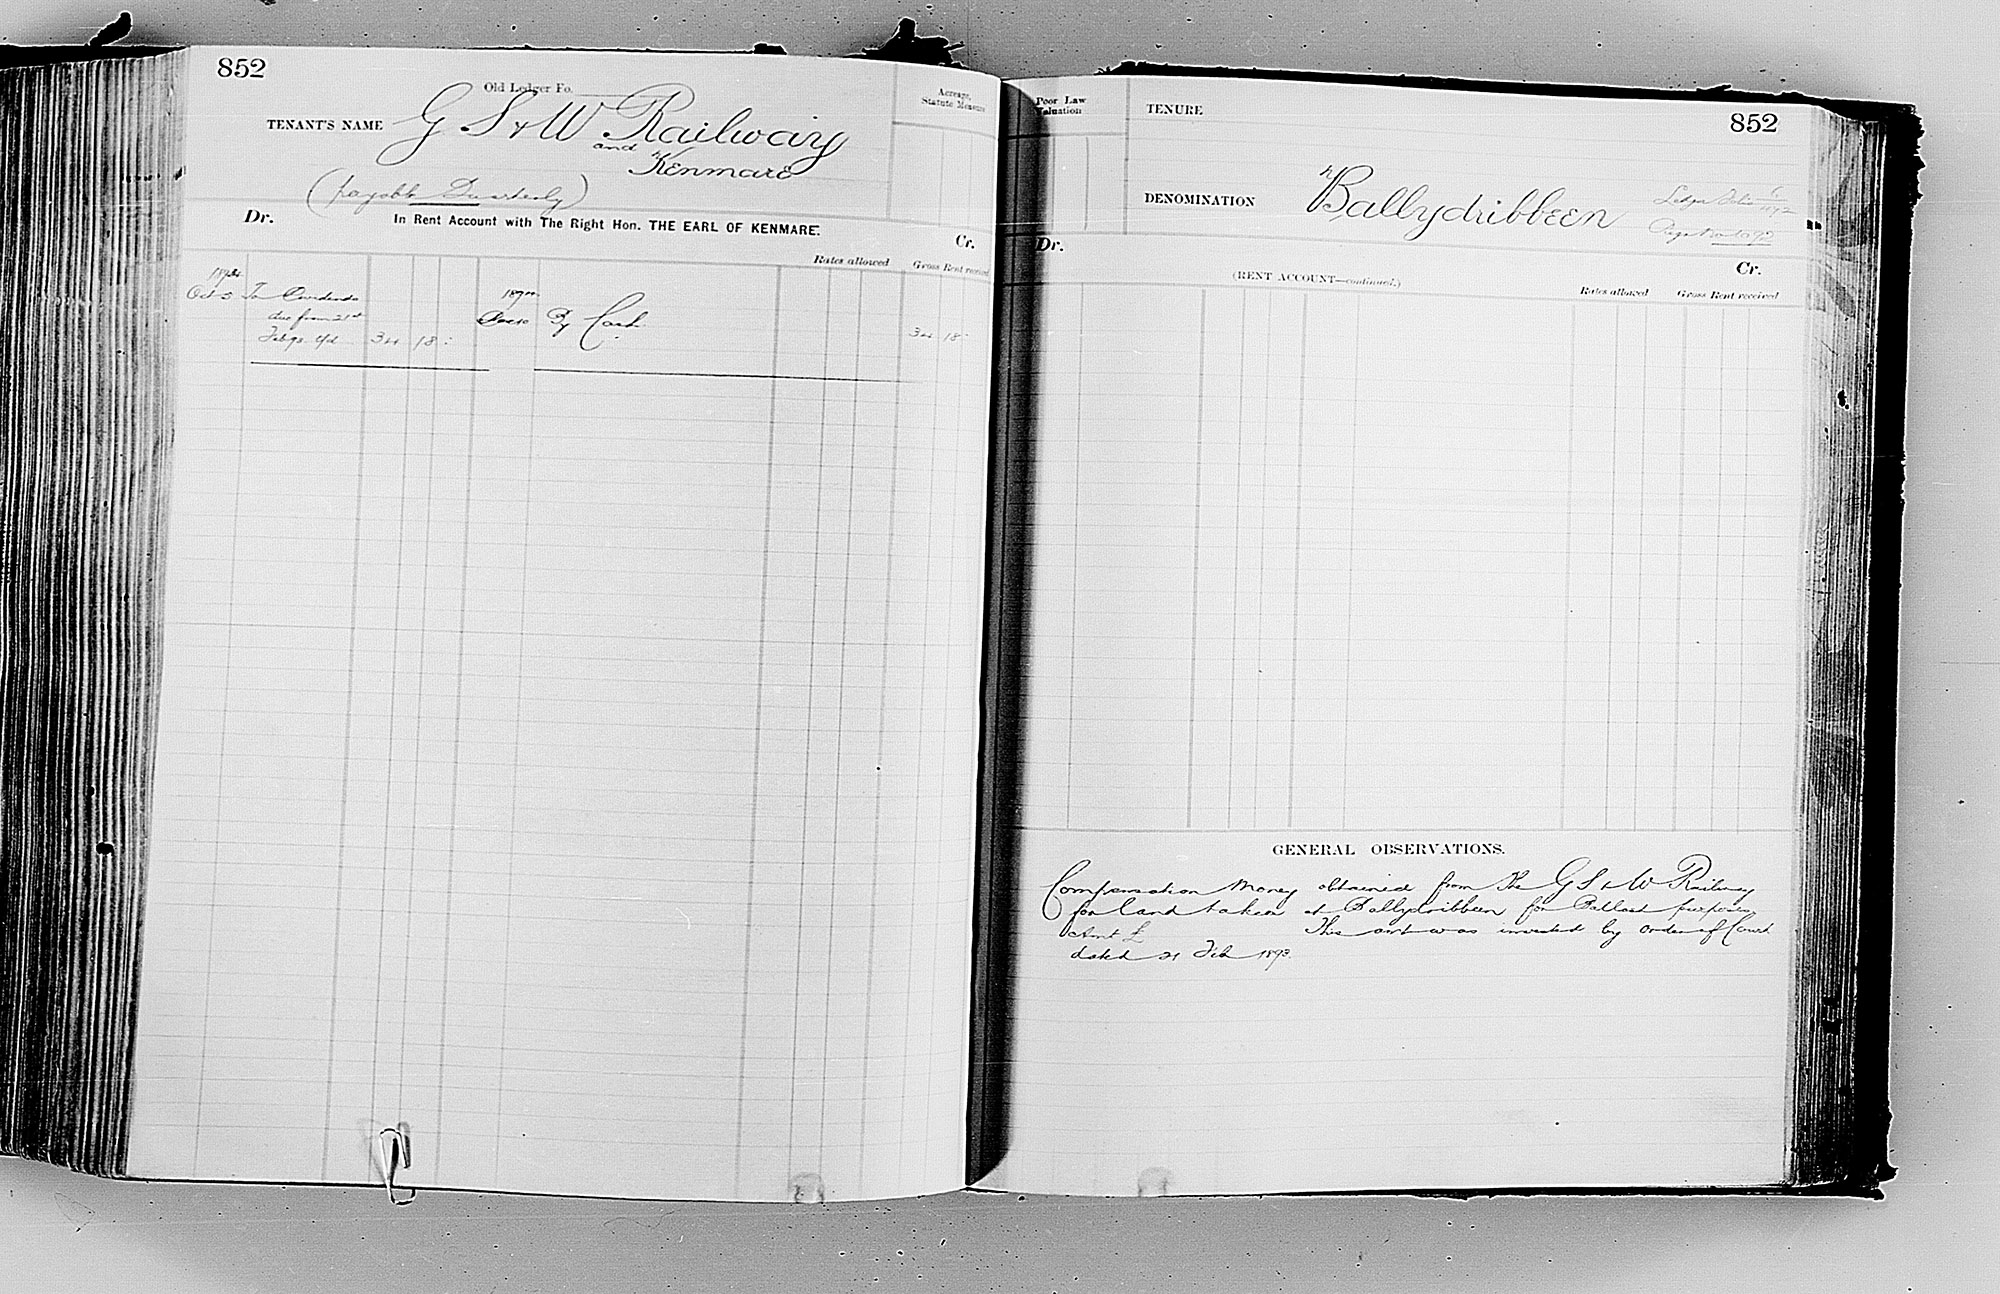 852
Old Ledger Fo.
TENANT'S NAME G S & W Railway
and Kenmare
(payable Quarterly)
Acreage,
Statute Measure
Dr. In Rent Account with The Right Hon. THE EARL OF KENMARE. Cr.
Rates allowed Gross Rent received
Oct 5 To Dividends
due from 21st
Feb 93 34 18
By Cash 34 18
Poor Law
Valuation
TENURE
852
DENOMINATION Ballydribbeen
Dr. Cr.
(RENT ACCOUNT—continued.)
Rates allowed Gross Rent received
GENERAL OBSERVATIONS.
Compensation Money obtained from the G S & W Railway
for land taken at Ballydribbeen for Ballast purposes
Amt £ This amt was invested by order of Court
dated 21 Feb 1893.